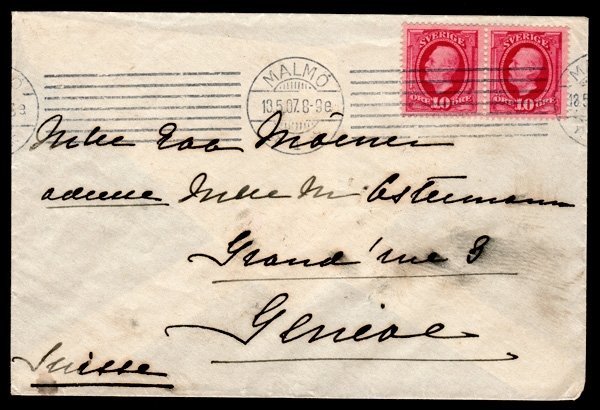 SVERIGE SVERIGE
10 ÖRE 10 ÖRE
MALMÖ
13.5.07. 8-9 e.
Mlle Eva Mörner
adresse Mlle M. Ostermann
Grand'rue 3
Genève
Suisse